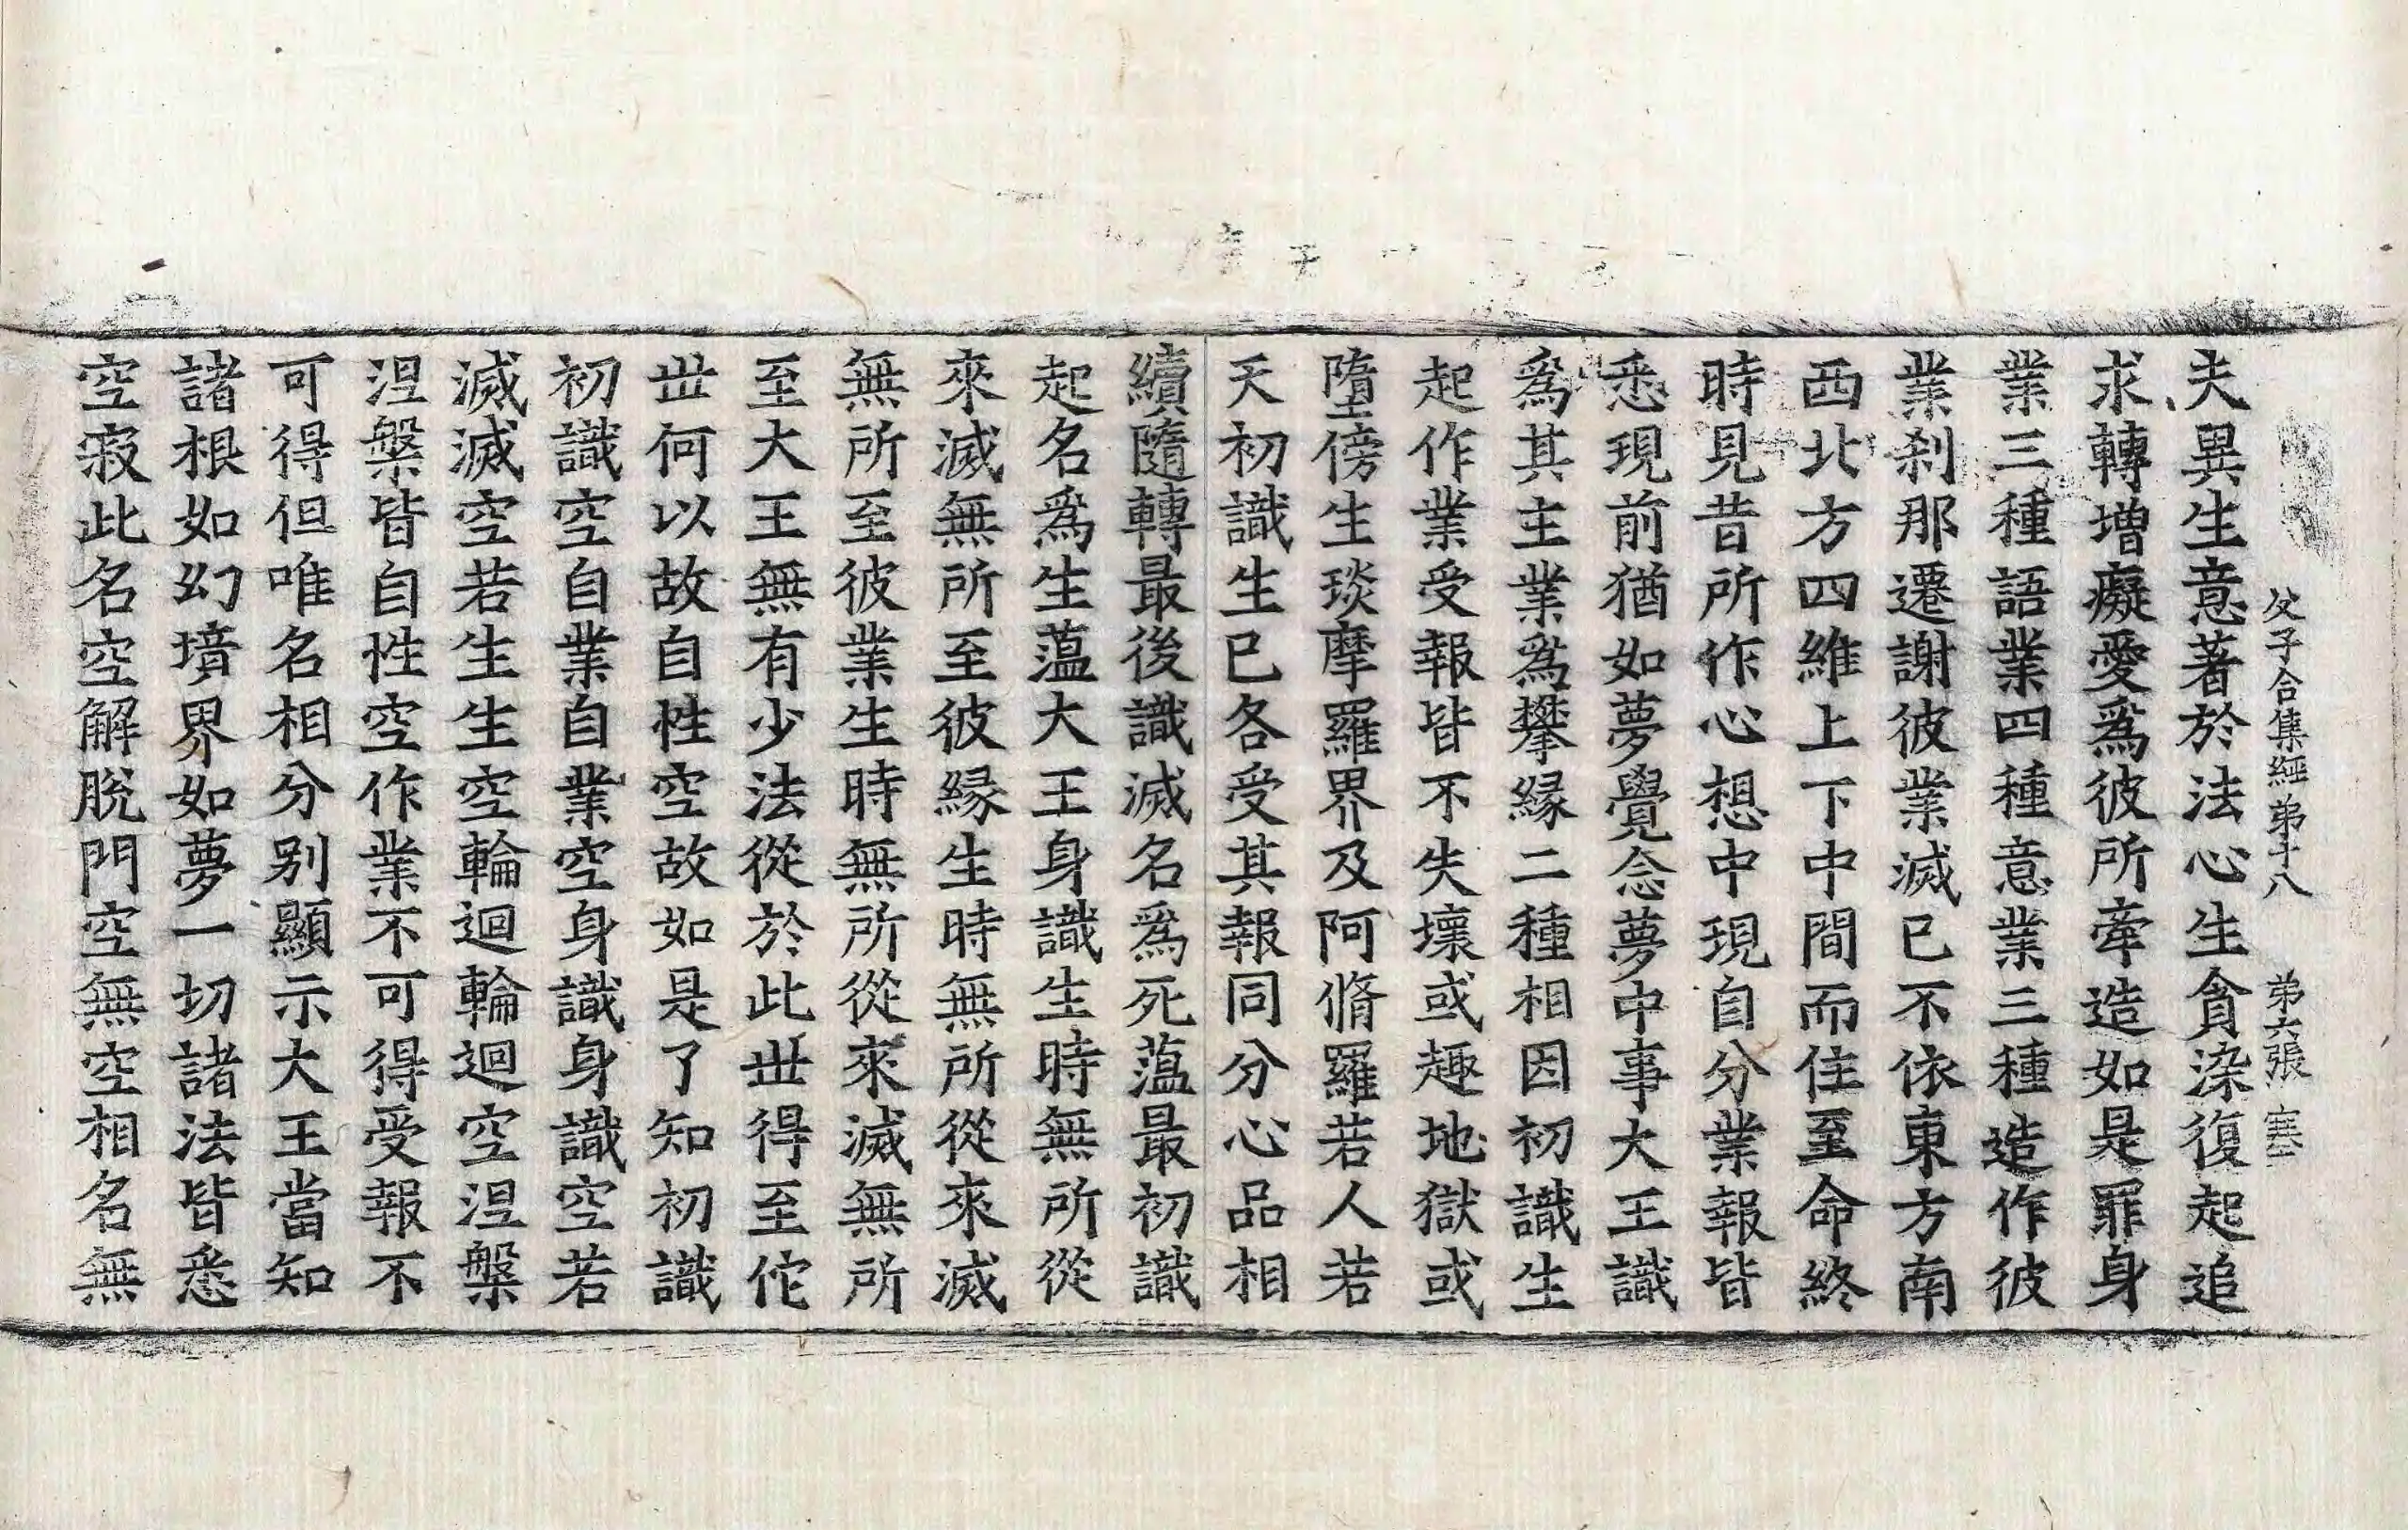 父子合集經第十八 第六張 寒
夫異生意著於法心生貪染復起追
求轉增癡愛爲彼所牽造如是罪身
業三種語業四種意業三種造作彼
業刹那遷謝彼業滅已不依東方南
西北方四維上下中間而住至命終
時見昔所作心想中現自分業報皆
悉現前猶如夢覺念夢中事大王識
爲其主業爲攀緣二種相因初識生
起作業受報皆不失壞或趣地獄或
墮傍生琰摩羅界及阿脩羅若人若
天初識生已各受其報同分心品相
續隨轉最後識滅名爲死蘊最初識
起名爲生蘊大王身識生時無所從
來滅無所至彼緣生時無所從來滅
無所至彼業生時無所從來滅無所
至大王無有少法從於此世得至佗
世何以故自性空故如是了知初識
初識空自業自業空身識身識空若
滅滅空若生生空輪迴輪迴空涅槃
涅槃皆自性空作業不可得受報不
可得但唯名相分别顯示大王當知
諸根如幻境界如夢一切諸法皆悉
空寂此名空解脫門空無空相名無